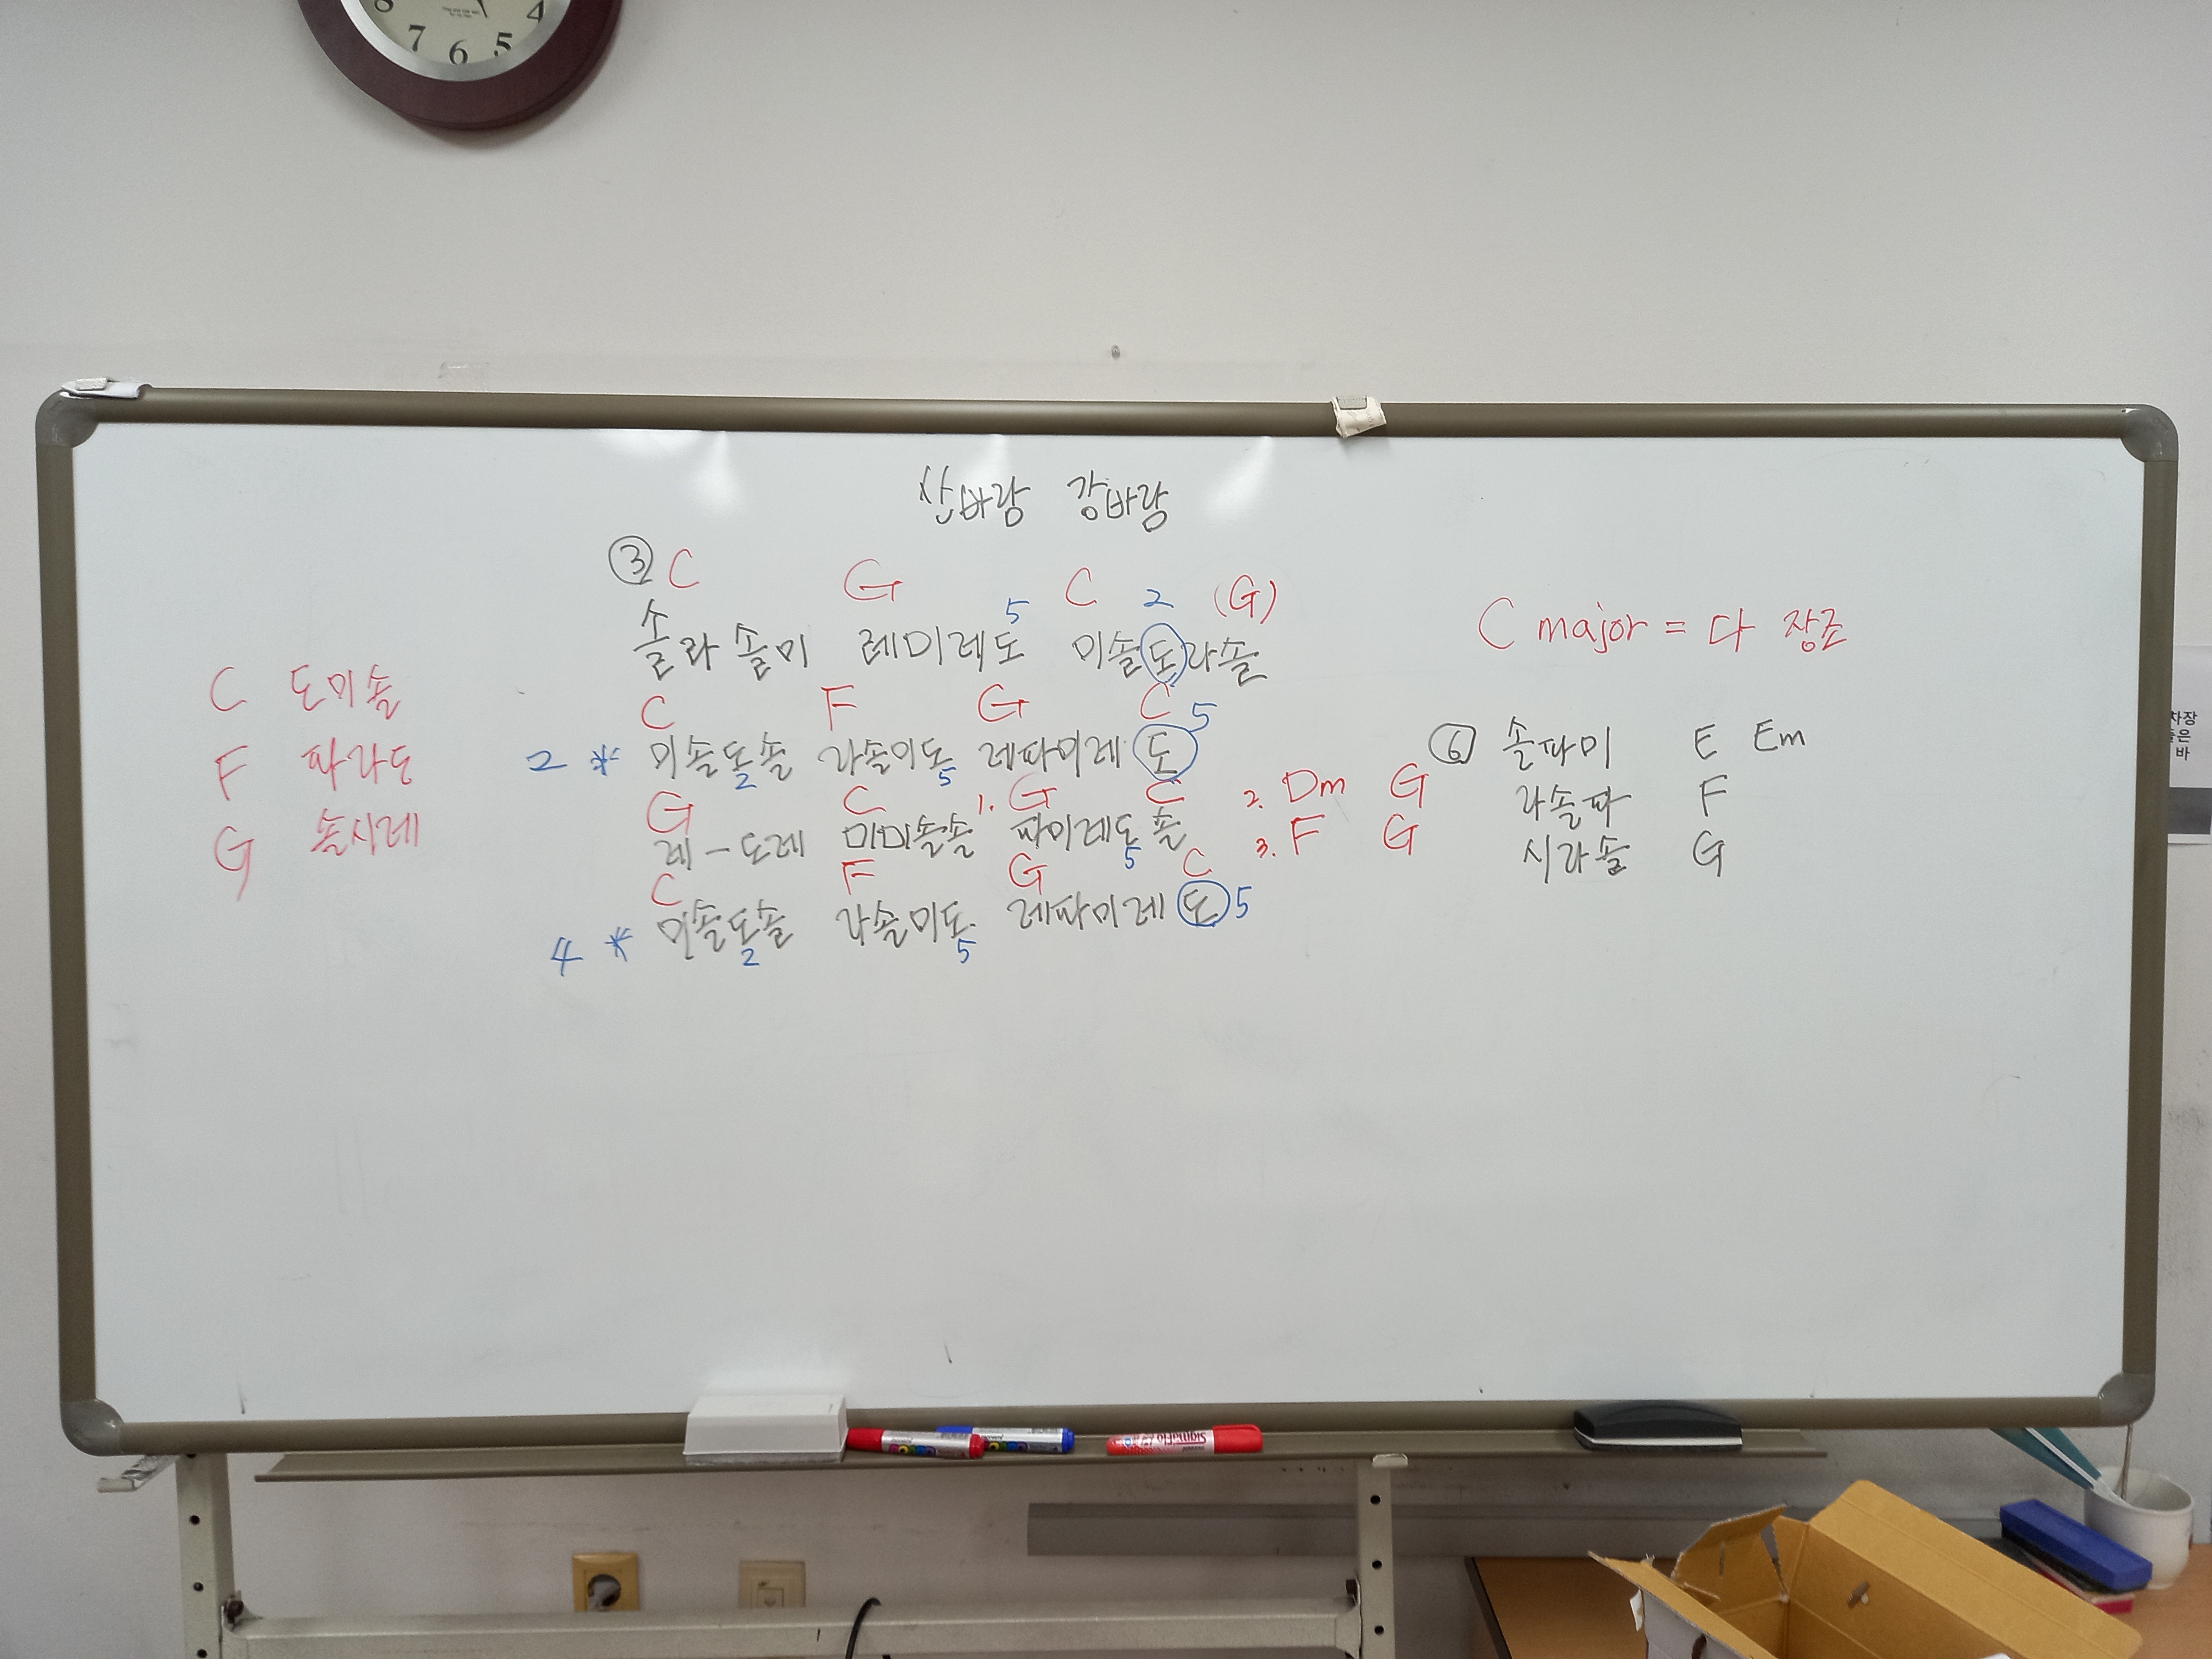 8 7 6 5 4
산바람 강바람
③ C G C (G)
5 2
솔라솔미 레미레도 미솔도라솔
솔
C F G C
2 * 미솔도솔 라솔미도 레파미레도 5
2 5
G C 1. G C 2. Dm G
레-도레 미미솔솔 파미레도솔 3. F G
5
C F G C
4 * 미솔도솔 라솔미도 레파미레도 5
2 5
C 도미솔
F 파라도
G 솔시레
C major = 다 장조
⑥ 솔파미 E Em
라솔파 F
시라솔 G
차장
은
바